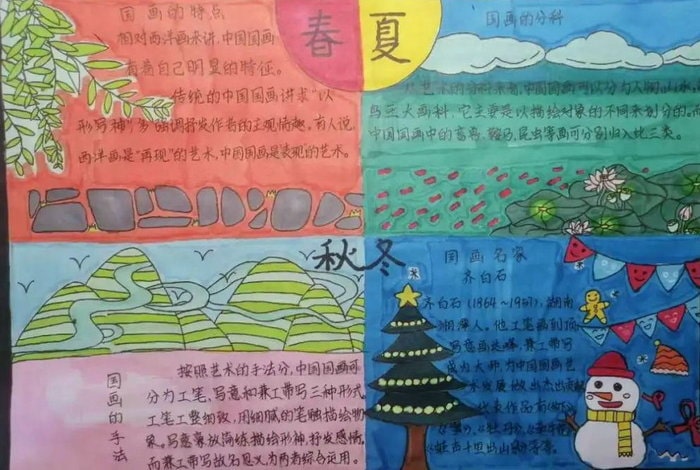 国画的特点
相对西洋画来讲，中国国画
有着自己明显的特征。
传统的中国国画讲求"以
形写神"，多的调抒发作者的主观情趣。有人说，
西洋画是"再现"的艺术，中国国画是表现的艺术。
春
夏
国画的分科
从艺术的分科来看，中国国画可以分为人物山水花
鸟三大画科，它主要是以描绘对象的不同来划分的。
中国国画中的畜兽、鞍马、昆虫等画可分别归入此三类。
秋
冬
国画的手法
按照艺术的手法分，中国国画可
分为工笔、写意和兼工带写三种形式
工笔工整细致，用细腻的笔触描绘物
象。写意兼放简练描绘形神，抒发感情。
而兼工带写故名思义为两者综合运用。
国画名家
齐白石
齐白石（1864～1957），湖南
湘潭人。他工笔画到顶，
写意画是峰，兼工带写
成为大师，为中国国画艺
术发展做出杰出贡献
代表作品有
《蛙声十里出山泉》等。